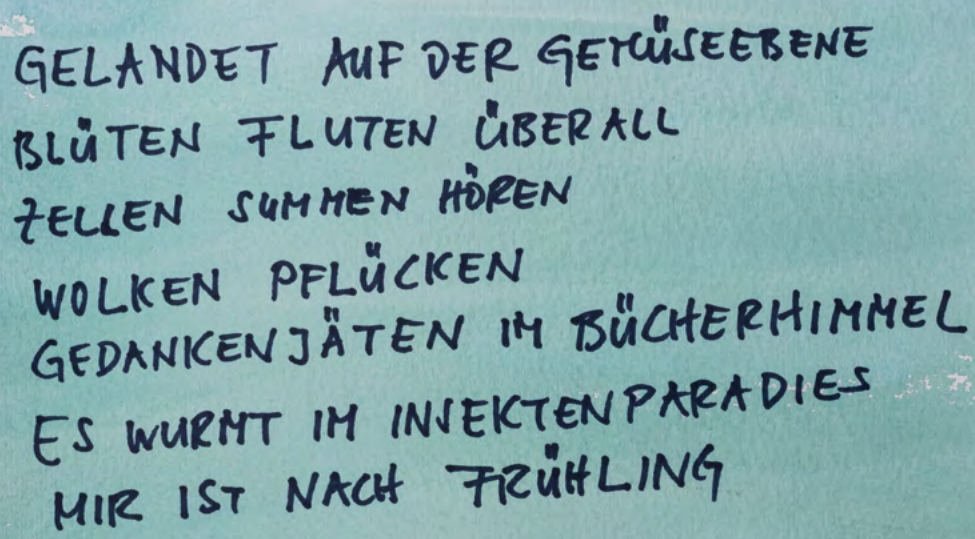 GELANDET AUF DER GEMÜSEEBENE
BLÜTEN FLUTEN ÜBERALL
ZELLEN SUMMEN HÖREN
WOLKEN PFLÜCKEN
GEDANKEN JÄTEN IM BÜCHERHIMMEL
ES WURMT IM INSEKTENPARADIES
MIR IST NACH FRÜHLING